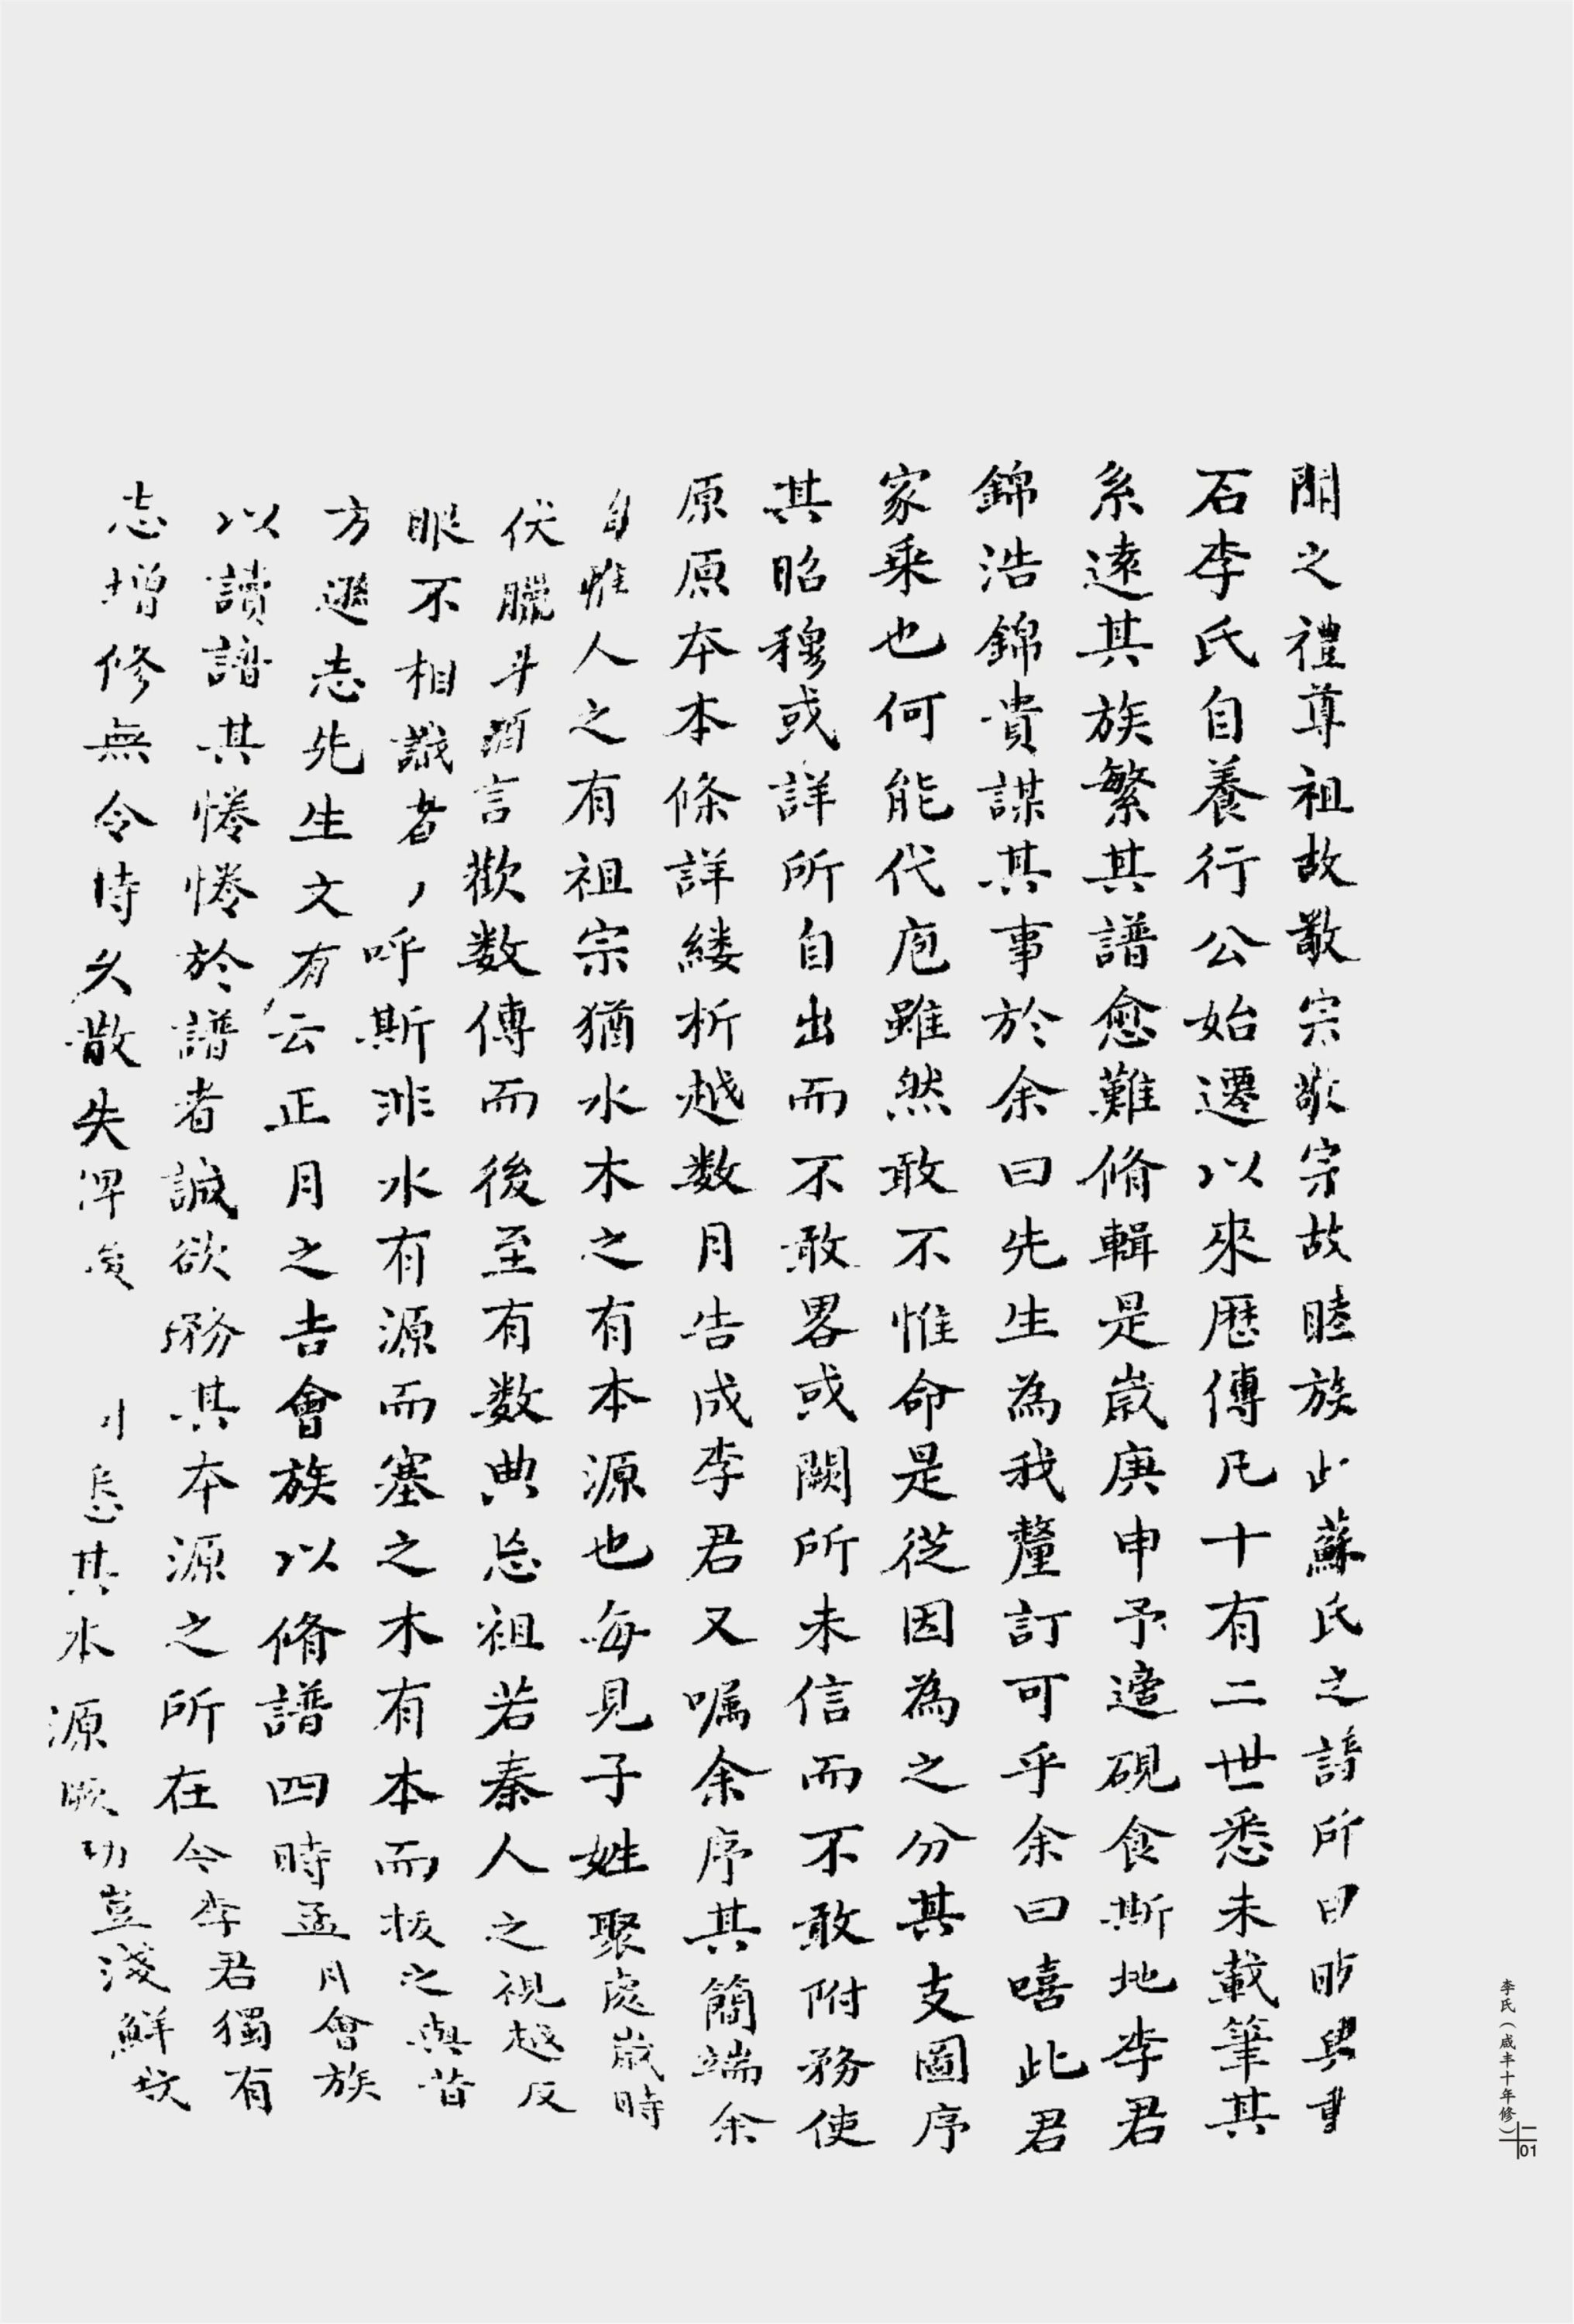 聞之禮尊祖故敬宗敬宗故睦族此蘇氏之譜所由昉與
石李氏自養行公始遷以來歷傳凡十有二世悉未載筆其
系遠其族繁其譜愈難脩輯是歲庚申予適硯食斯地李君
錦浩錦貴謀其事於余曰先生為我釐訂可乎余曰嘻此君
家乘也何能代庖雖然敢不惟命是從因為之分其支圖序
其昭穆或詳所自出而不敢畧或闕所未信而不敢附務使
原原本本條詳縷析越数月告成李君又嘱余序其簡端余
惟人之有祖宗猶水木之有本源也每見子姓聚處歲時
伏臘斗酒言歡数傳而後至有数典忘祖若秦人之視越反
眼不相識者呼斯非水有源而塞之木有本而拔之與昔
方遜志先生文有云正月之吉會族以脩譜四時孟月會族
以讀譜其惓惓於譜者誠欲務其本源之所在今李君獨有
志增修無令時久散失俾後 忘其本源厥功豈淺鮮哉
李氏（咸丰十年修）
一
01